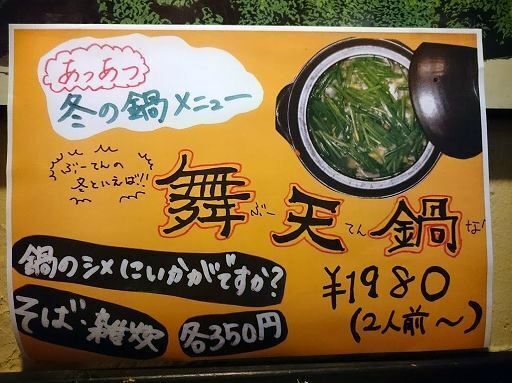 あっあつ
冬の鍋メニュー
ぶーてんの
冬といえば!!
舞天鍋
ぶーてんな
鍋のシメにいかがですか?
¥1980
(2人前〜)
そば・雑炊 各350円